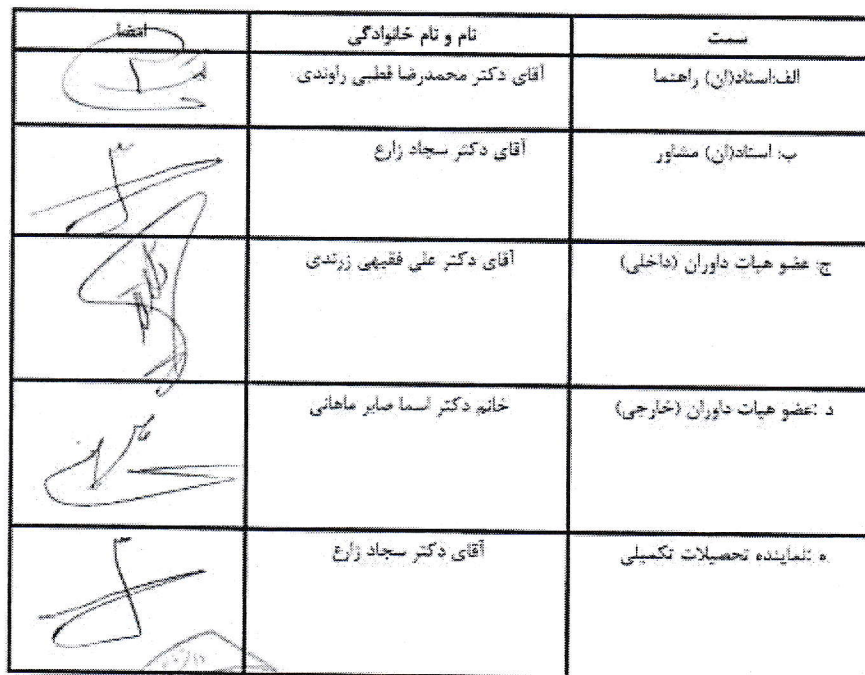 سمت نام و نام خانوادگی امضا
الف:استاد(ان) راهنما آقای دکتر محمدرضا قطبی راوندی
ب: استاد(ان) مشاور آقای دکتر سجاد زارع
ج: عضو هیات داوران (داخلی) آقای دکتر علی فقیهی زرندی
د :عضو هیات داوران (خارجی) خانم دکتر اسما صابر ماهانی
ه :نماینده تحصیلات تکمیلی آقای دکتر سجاد زارع